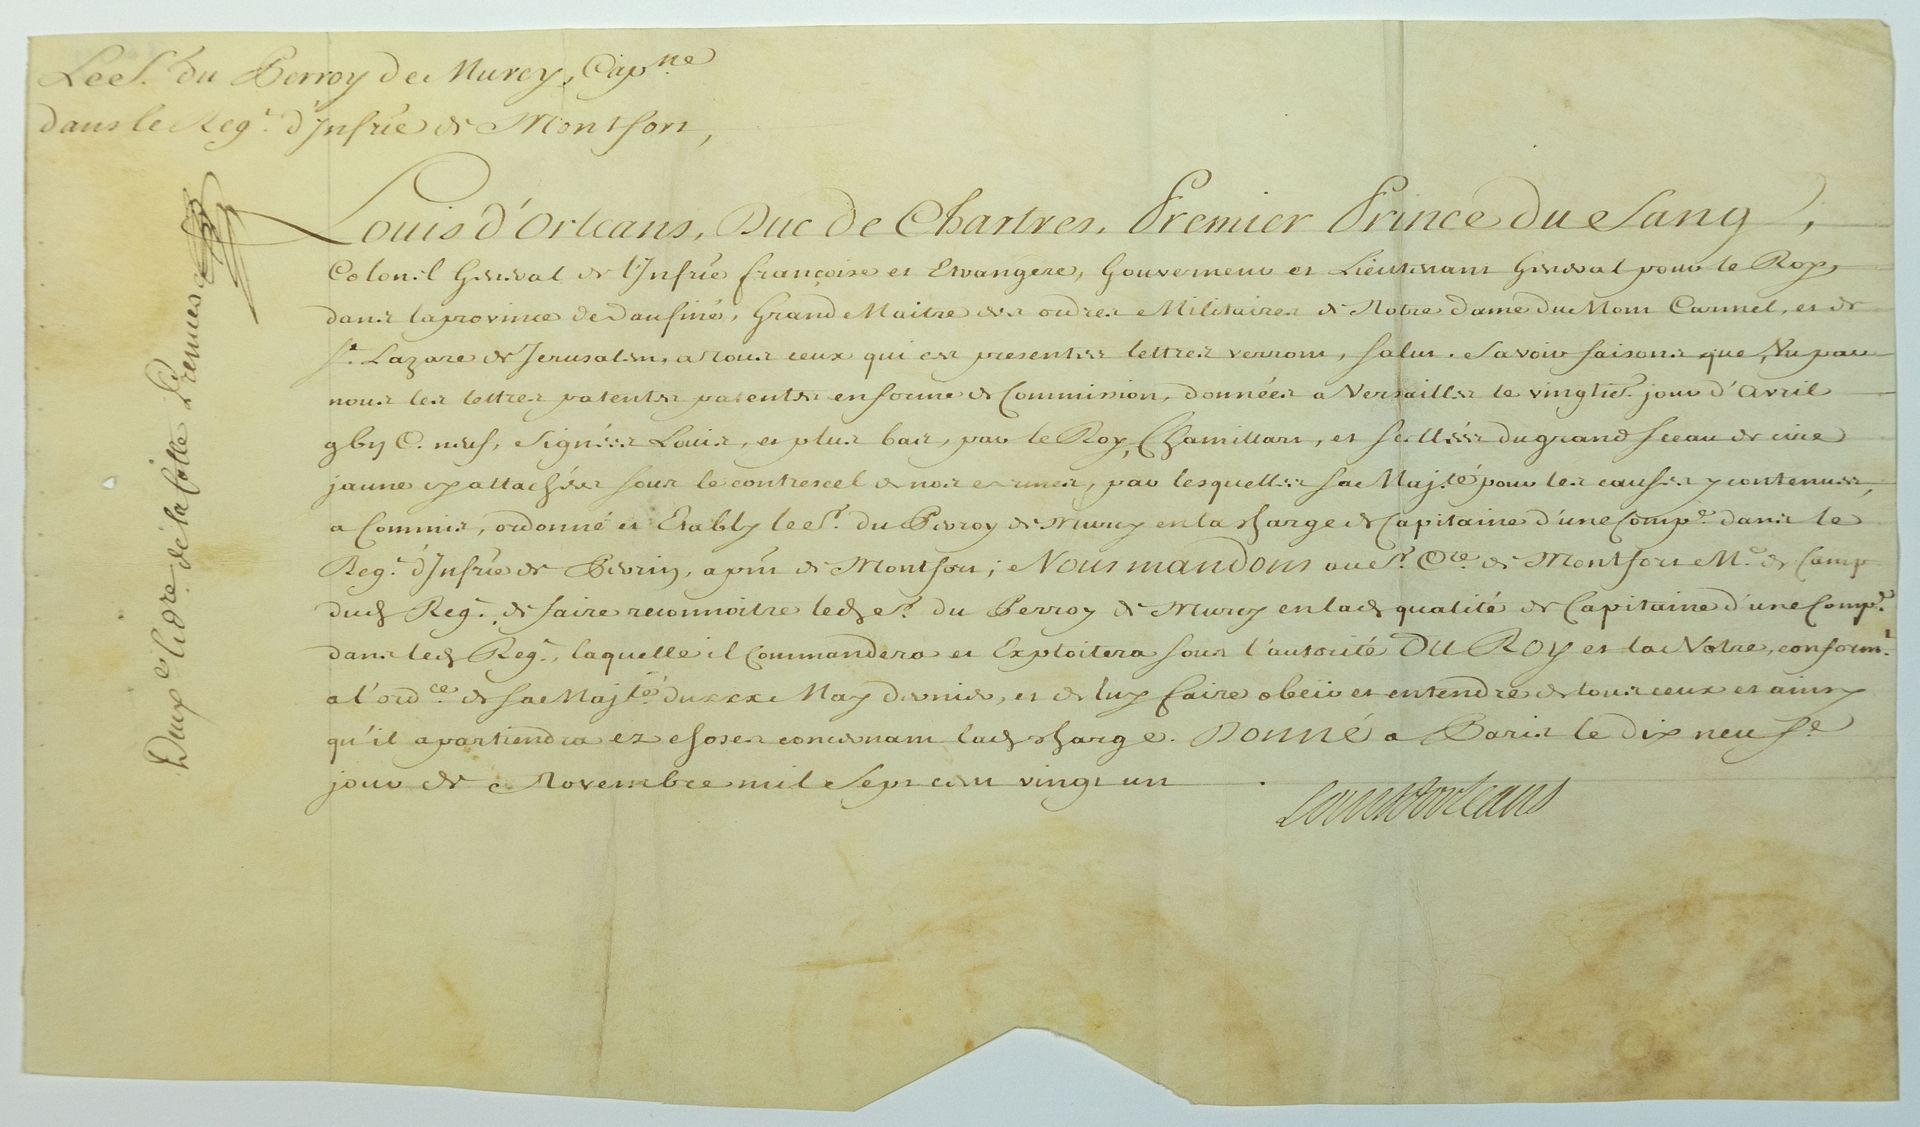 Le S.r du Perroy de Murcy, Cap.ne
dans le Reg.t d'Inf.rie de Montfort,
Louis d'Orleans, Duc de Chartres, Premier Prince du Sang,
Colonel General de l'Inf.rie françoise et Etrangere, Gouverneur et Lieutenant General pour le Roy,
dans la province de Daufiné, Grand Maitre des ordres Militaires de Notre Dame du Mont Carmel, et de
S.t Lazare de Jerusalem, a tous ceux qui ces presentes lettres verront, Salut. Savoir faisons que, Vu par
nous les lettres patentes patentes en forme de Commission, données a Versailles le vingtie. jour d'Avril
gbij C. neuf, Signées Louis, et plus bas, par le Roy, Chamillart, et scellées du grand sceau de cire
jaune cy attachées sous le contrescel de nos armes, par lesquelles Sa Maj.té pour les causes y contenues,
a Commis, ordonné et Etably le S.r du Perroy de Murcy en la charge de Capitaine d'une Comp.e dans le
Reg.t d'Inf.rie de Perrin, a pnt de Montfort; Nous mandons au S.r C.te de Montfort M.e de Camp
dud. Reg.t de faire reconnoitre led. S.r du Perroy de Murcy en lad. qualité de Capitaine d'une Comp.e
dans led. Reg.t, laquelle il Commandera et Exploitera sous l'autorité DU ROY et la Notre, conform.t
a l'ord.ce de Sa Maj.té du xxx May dernier, et de luy faire obeïr et entendre de tous ceux et ainsy
qu'il apartiendra ez choses concernant lad. charge. Donné a Paris le dix neuf.e
jour de Novembre mil Sept cent vingt un.
Louis d'orleans
Deux.e de la Colle Premiere